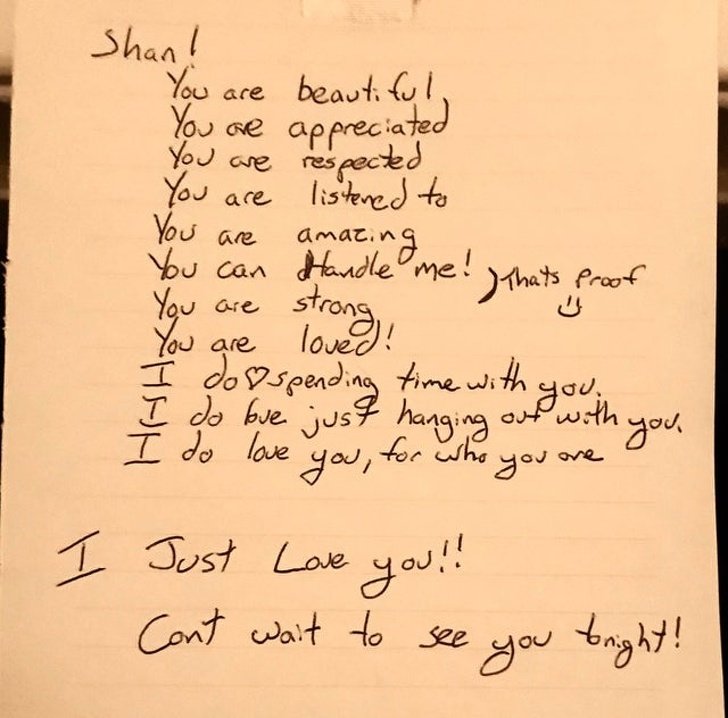 Shan!
You are beautiful,
You are appreciated
You are respected
You are listened to
You are amazing
You can Handle me! ) Thats Proof
You are strong
You are loved!
I do ♡ spending time with you.
I do love just hanging out with you.
I do love you, for who you are
I Just Love you!!
Cant wait to see you tonight!